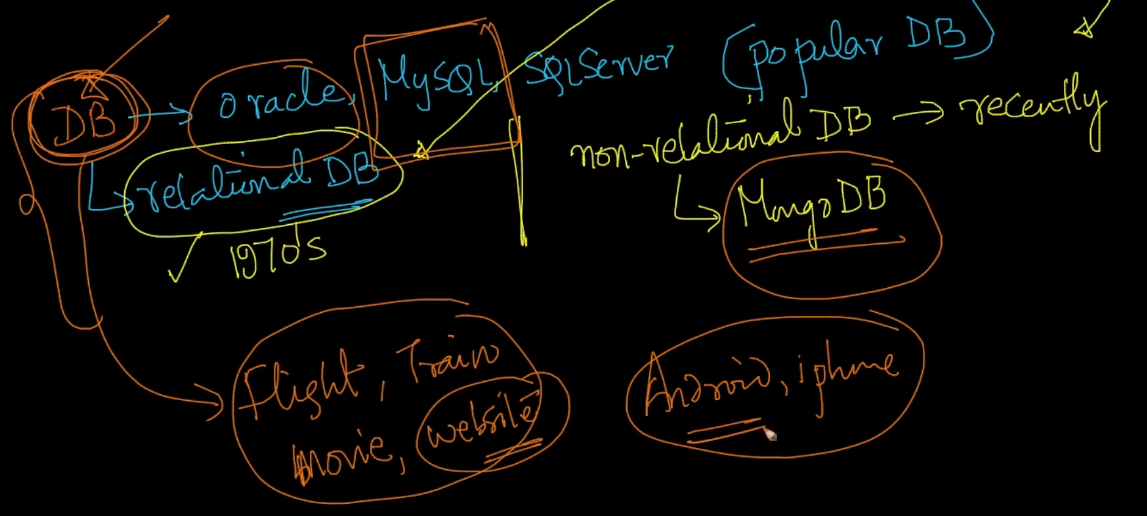 DB → oracle, MySQL, SQLServer (popular DB)
relational DB
1970's
non-relational DB → recently
MongoDB
Flight, Train
movie, website
Android, iphone